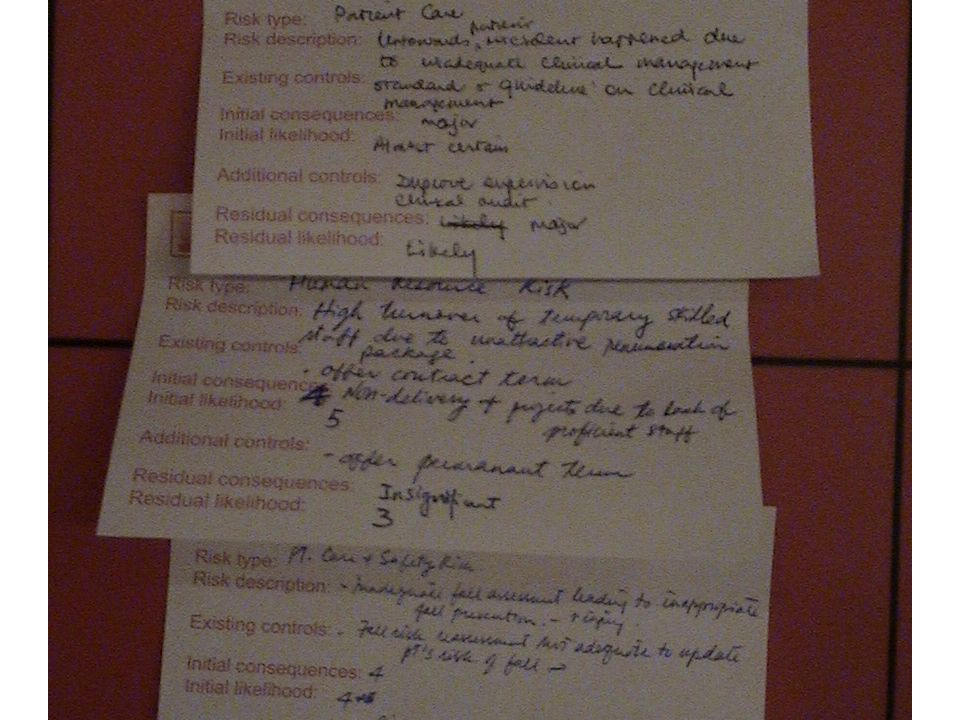 Risk type: Patient Care
patient
Risk description: Untowards, incident happened due
to inadequate clinical management
Existing controls: standard & guideline on clinical
management
Initial consequences: major
Initial likelihood: Almost certain
Additional controls: Improve supervision
clinical audit.
Residual consequences: Likely major
Residual likelihood: Likely
Risk type: Human Resource Risk
Risk description: High turnover of temporary skilled
staff due to unattractive remuneration
Existing controls: package.
- offer contract term
Initial consequences: 4 Non-delivery of projects due to lack of
Initial likelihood: 5 proficient staff
Additional controls: - offer permanant term
Residual consequences: Insignificant
Residual likelihood: 3
Risk type: PT. Care & Safety Risk
Risk description: - Inadequate fall assessment leading to inappropriate
fall prevention. - injury
Existing controls: - Fall risk reassessment not adequate to update
pt's risk of fall
Initial consequences: 4
Initial likelihood: 4